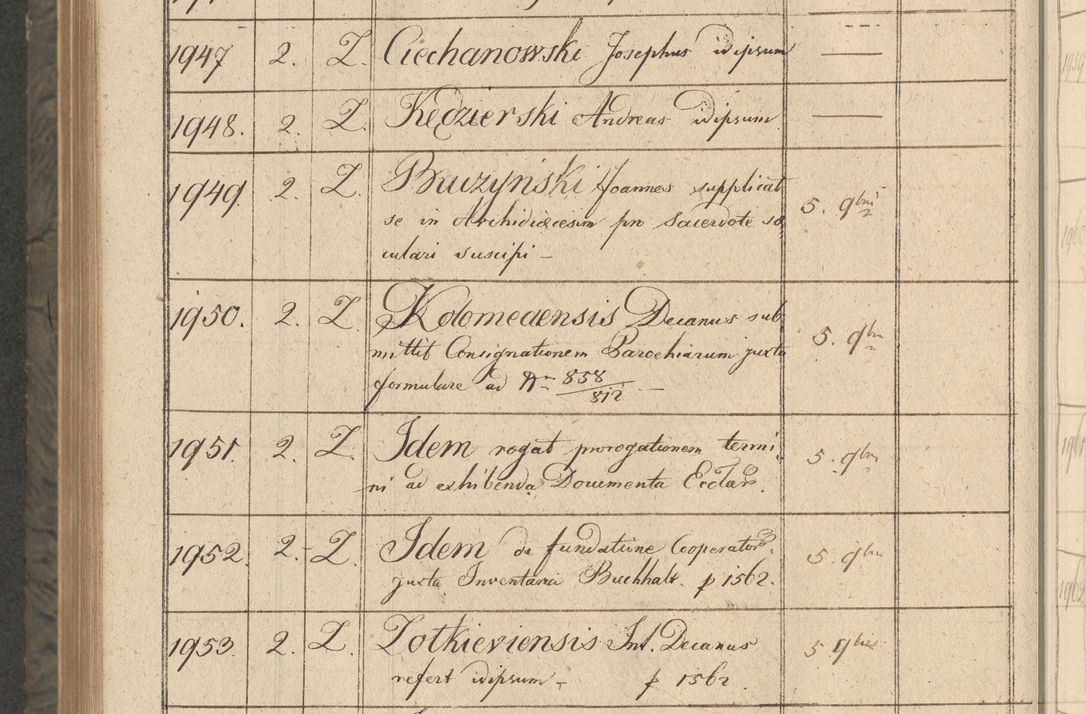 1947 2. Z. Ciechanowski Josephus idipsum —
1948. 2. Z. Kędzierski Andreas idipsum —
1949. 2. Z. Buczyński Joannes supplicat 5. 9bris
se in Archidiœcesim pro Sacerdote sæ
culari suscipi —
1950. 2. Z. Kolomeaensis Decanus sub 5. 9bris
mittit Consignationem Parochiarum juxta
formulare ad Nrum 858/812 —
1951. 2. Z. Idem rogat prorogationem termi 5. 9bris
ni ad exhibenda Documenta Ecclar.
1952. 2. Z. Idem de fundatione Cooperator. 5. 9bris
juxta Inventaria Buchhalt. p 1562.
1953. 2. Z. Zotkieviensis Int. Decanus 5 9bris
refert idipsum — p 1562